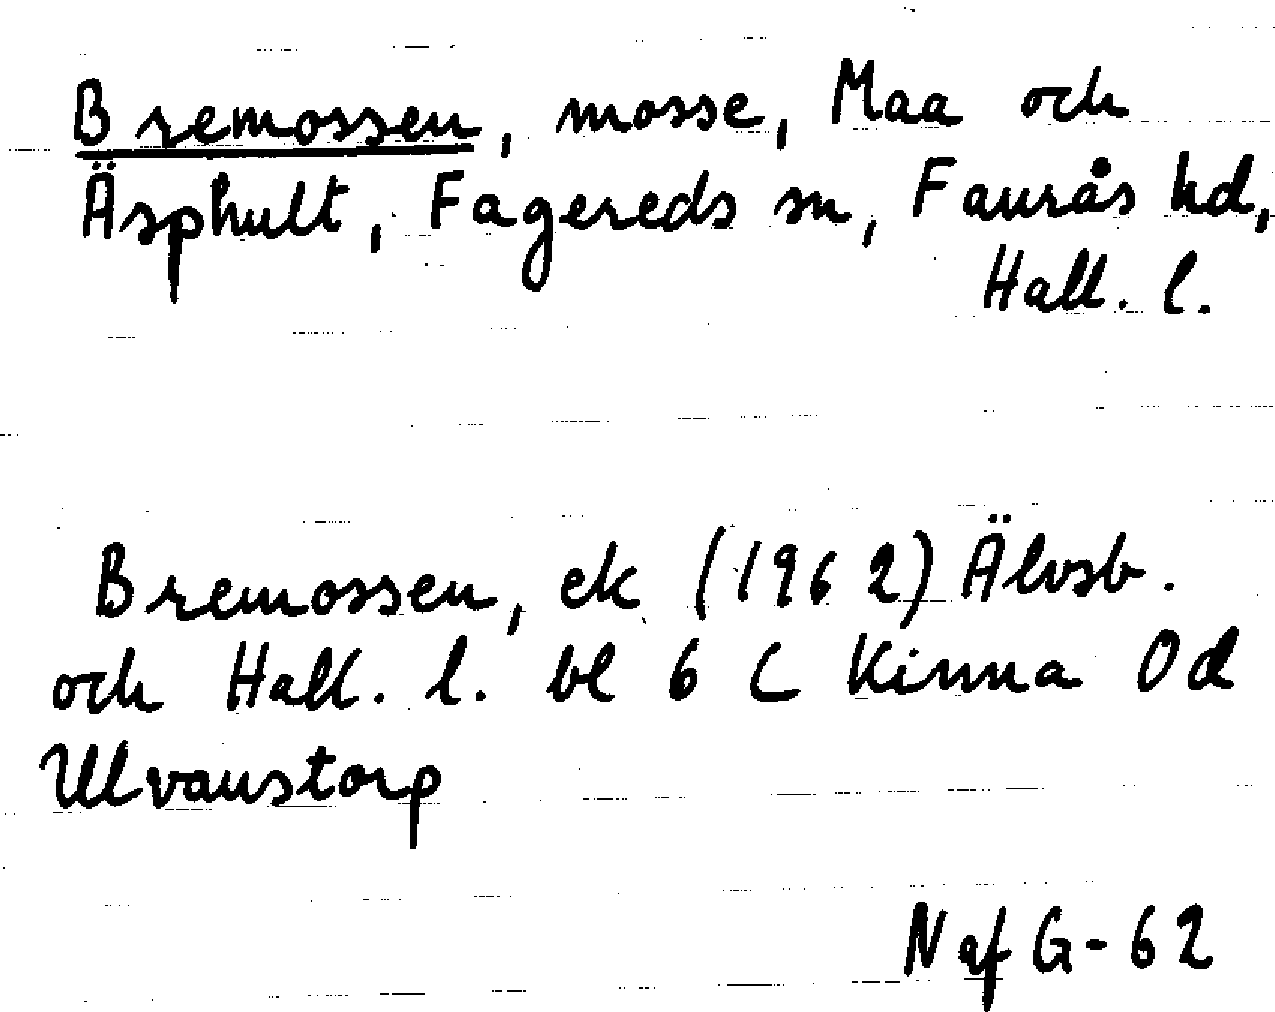 Bremossen, mosse, Maa och
Äsphult, Fagereds sn, Faurås hd,
Hall. l.
Bremossen, ek (1962) Älvsb.
och Hall. l. bl 6 C Kinna 0d
Ulvanstorp
NafG-62